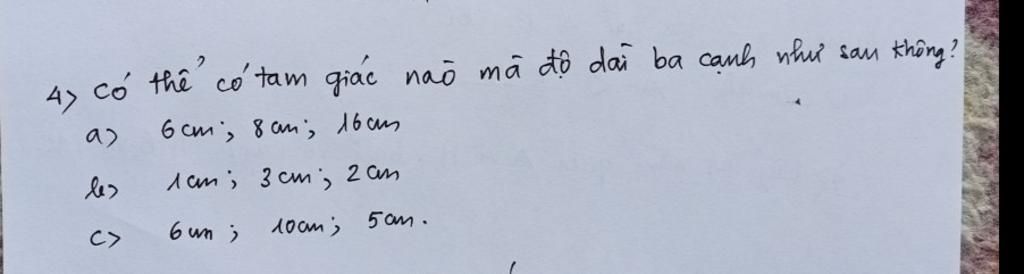 4) Có thể có tam giác nào mà độ dài ba cạnh như sau không?
a) 6cm; 8cm; 16cm
b) 1cm; 3cm; 2cm
c) 6cm; 10cm; 5cm.